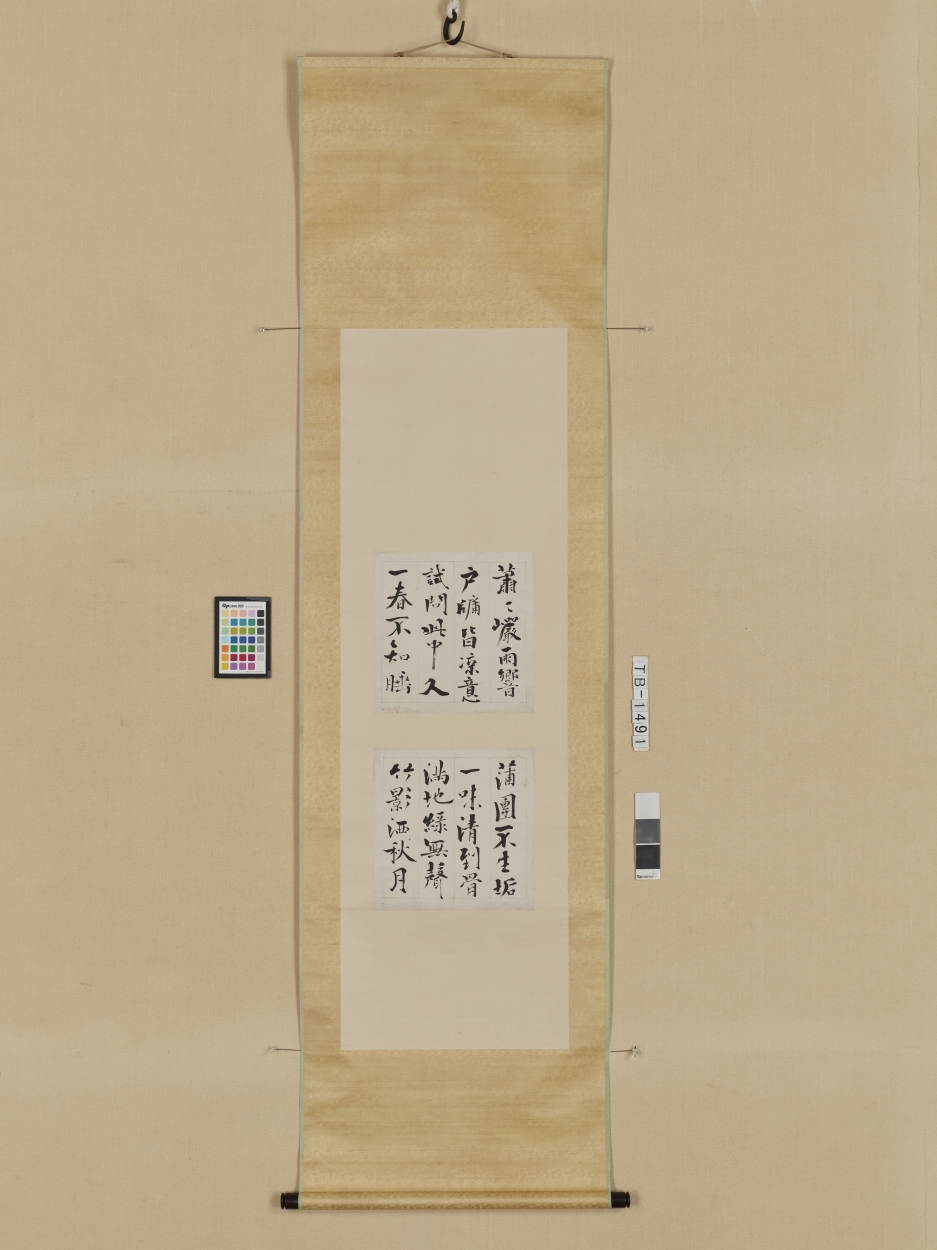 蕭〻巖雨響
戶牖皆涼意
試問此中人
一春不知晴
蒲團不生垢
一味清到骨
滿地綠無聲
竹影洒秋月
TB-1491